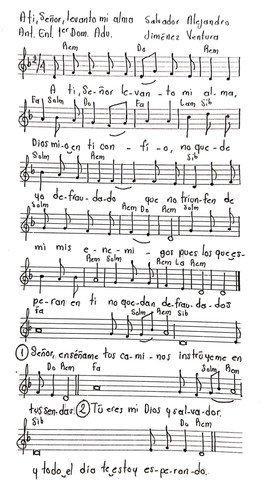 A ti, Señor, levanto mi alma Salvador Alejandro
Ant. Ent. 1er Dom. Adv. Jiménez Ventura
Rem Do Rem
A ti, Se-ñor le-van-to mi al-ma,
Fa Solm Do Fa Lam Sib
Dios mi-o en ti con-fí-o, no que-de
Solm Rem Sib
yo de-frau-dado que no triun-fen de
Solm Rem Do Rem Solm
mi mis e-ne-mi-gos pues los que es-
Rem Solm Rem La Rem
pe-ran en ti no que-dan de-frau-da-dos
Fa Solm Rem Sib
① Señor, enséñame tus ca-mi-nos instrúyeme en
Do Rem Fa Solm Rem
tus sen-das. ② Tú eres mi Dios y sal-va-dor.
Sib Do Rem
y todo el día te estoy es-pe-ran-do.